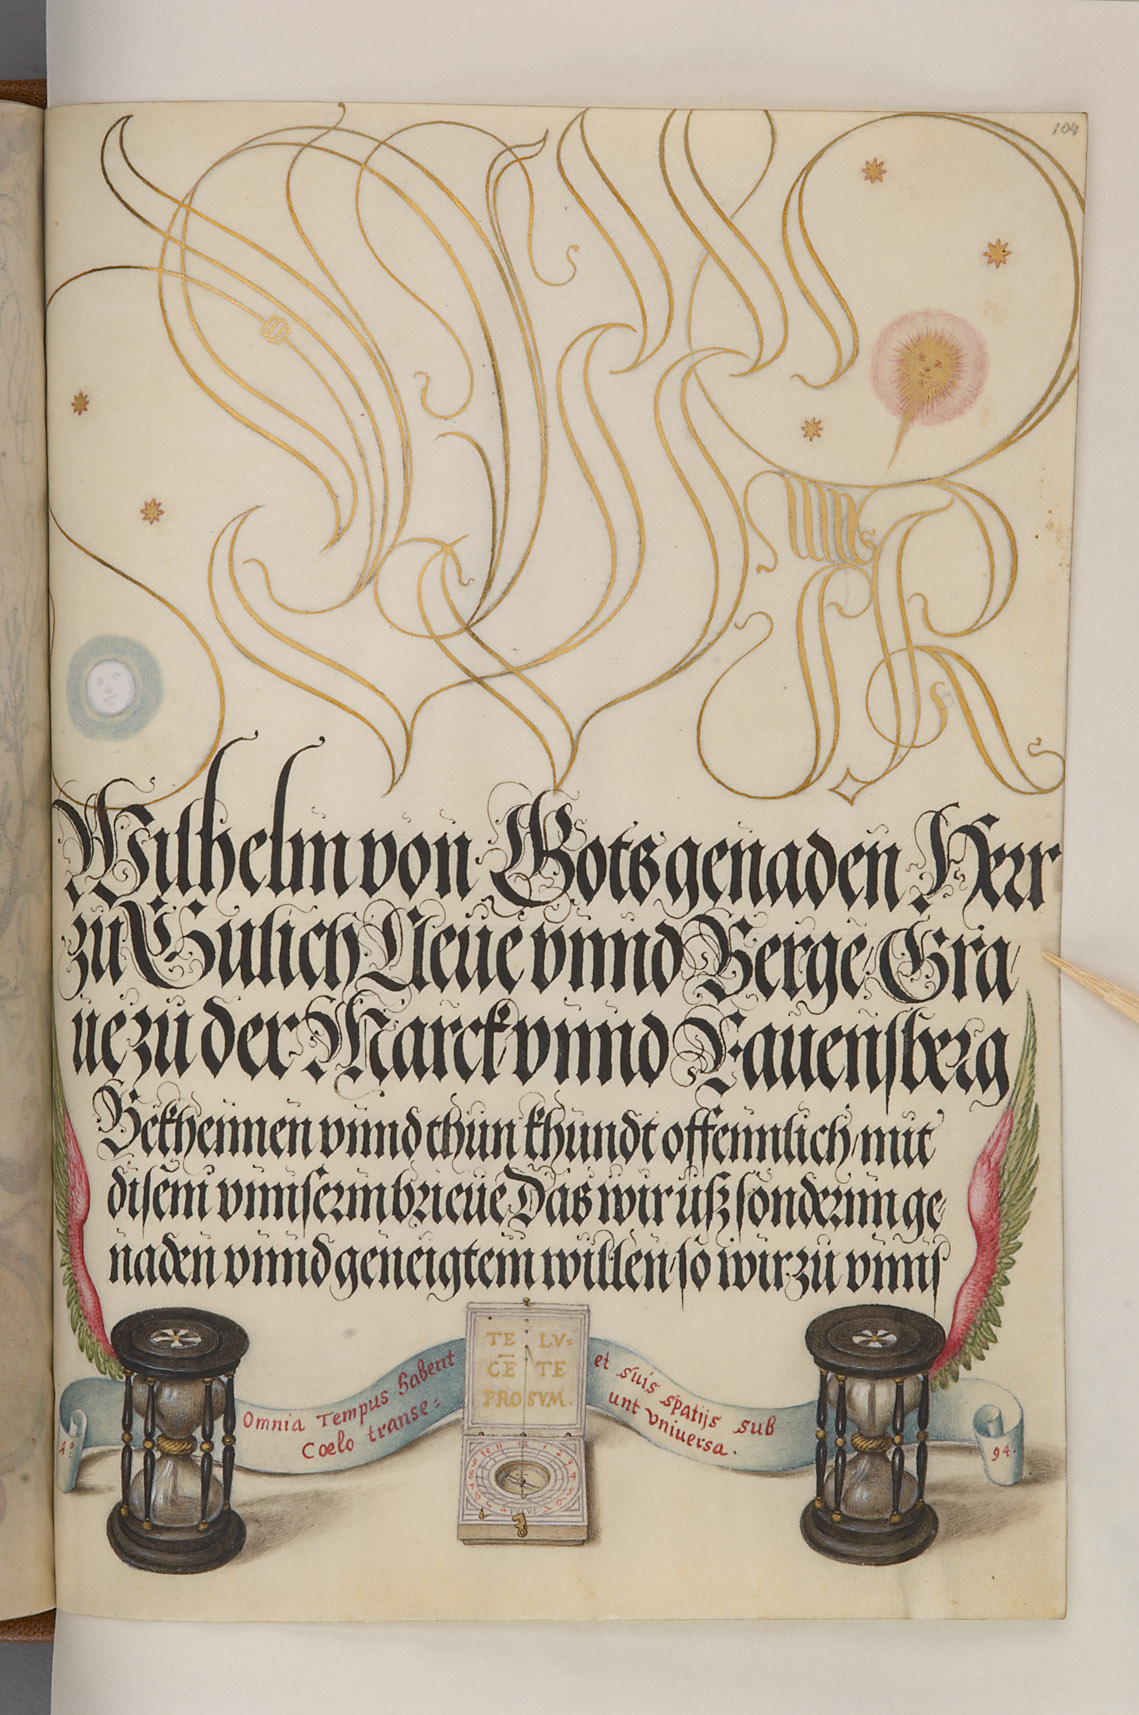 104
WIR
Wilhelm von Gots genaden Herr
zu Gulich Cleue vnnd Berge Gra
ue zu der Marck vnnd Rauensberg
Bekhennen vnnd thun khundt offennlich mit
disem vnnserm brieue Das wir uß sonderm ge
naden vnnd geneigtem willen so wir zu vnns
TE LV=
CE TE
PROSVM.
Omnia Tempus habent
Coelo transe=
et suis spatijs sub
unt vniuersa.
A.o
94.